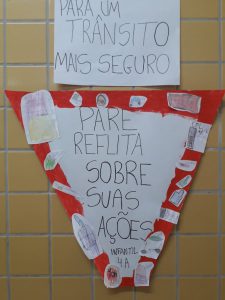 PARA UM
TRÂNSITO
MAIS SEGURO
PARE
REFLITA
SOBRE
SUAS
AÇÕES
INFANTIL
4A